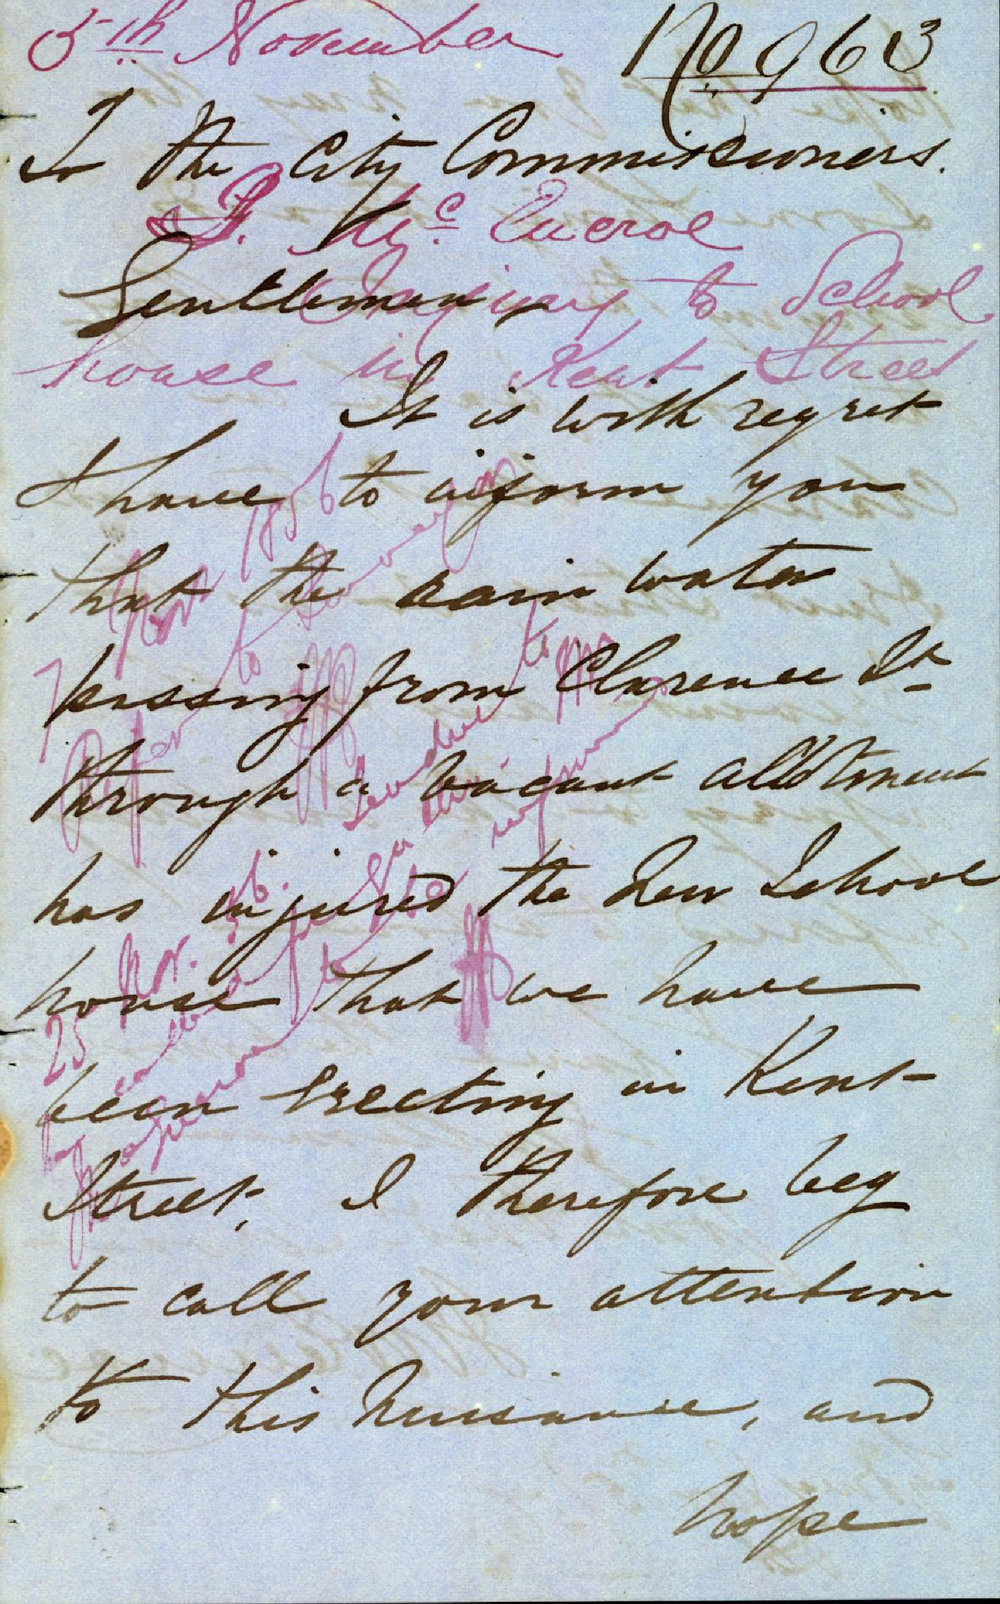 5th November
No 963
To the City Commissioners.
Mc Encroe
Gentlemen
Injury to School
house in Kent Street
It is with regret
I have to inform you
that the rain water
passing from Clarence St
through a vacant allotment
has injured the New School
house that we have
been erecting in Kent
Street, I therefore beg
to call your attention
to this Nuisance, and
hope
7 Nov 1856
Refer to Surveyor
25 Nov. 56.